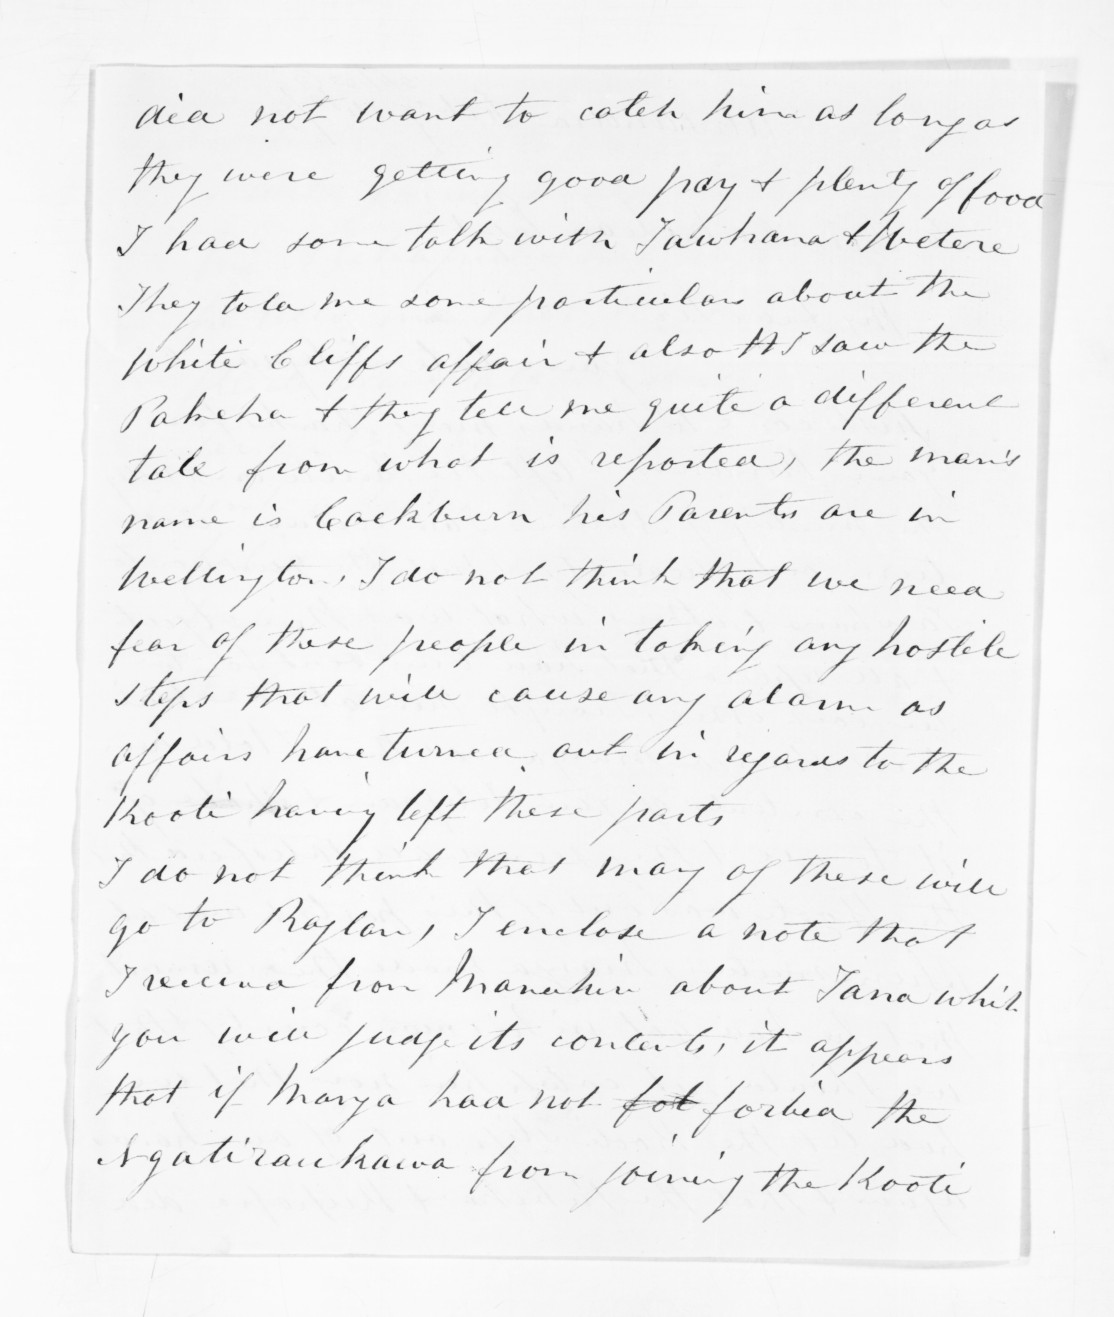 did not want to catch him as long as
they were getting good pay & plenty of food
I had some talk with Tawhana & Wetere
They told me some particulars about the
White Cliffs affair & also I saw the
Pakeha & they tell me quite a different
tale from what is reported, the man's
name is Cockburn his Parents are in
Wellington, I do not think that we need
fear of these people in taking any hostile
steps that will cause any alarm as
affairs have turned out in regards to the
Kooti having left these parts
I do not think that many of these will
go to Raglan, I enclose a note that
I received from Manuhiri about Tana whih
you will judge its contents, it appears
that if Manga had not fot forbid the
Ngatiraukawa from joining the Kooti